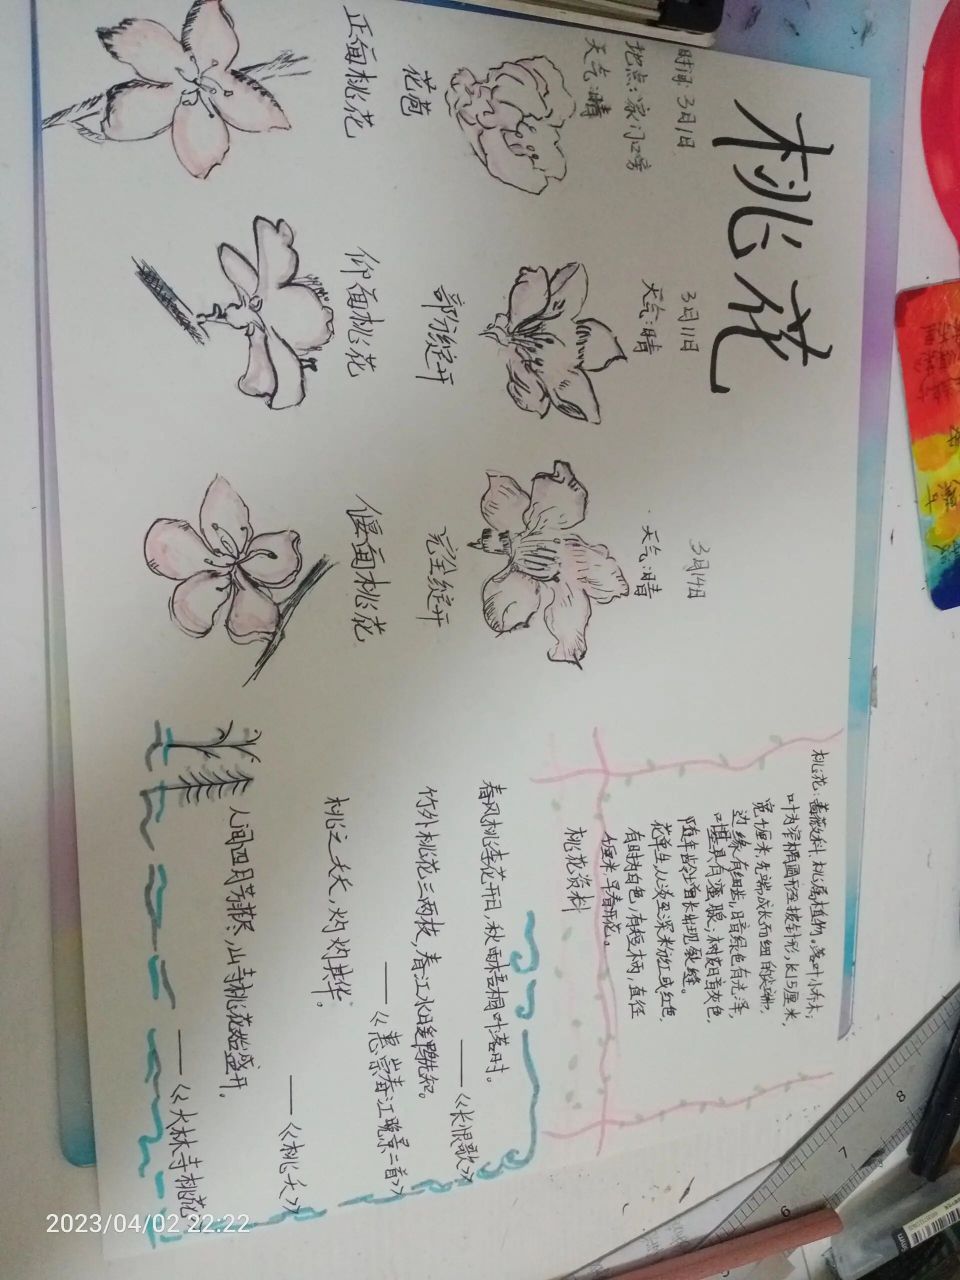 桃花
时间:3月1日
地点:家门口旁
天气:晴
3月11日
天气:晴
3月14日
天气:晴
花苞
部分绽开
完全绽开
正面桃花
仰面桃花
偃面桃花
桃花:蔷薇科、桃属植物。落叶小乔木;
叶为窄椭圆形至披针形,长15厘米,
宽4厘米,先端成长而细的尖端,
边缘有细齿,暗绿色有光泽,
叶基具有蜜腺;树皮暗灰色,
随年龄增长出现裂缝。
花单生,从淡至深粉红或红色,
有时为白色,有短柄,直径
4厘米,早春开花。
桃花资料
春风桃李花开日,秋雨梧桐叶落时。
——《长恨歌》
竹外桃花三两枝,春江水暖鸭先知。
——《惠崇春江晚景二首》
桃之夭夭,灼灼其华。
——《桃夭》
人间四月芳菲尽,山寺桃花始盛开。
——《大林寺桃花》
8
7
6
2023/04/02 22:22